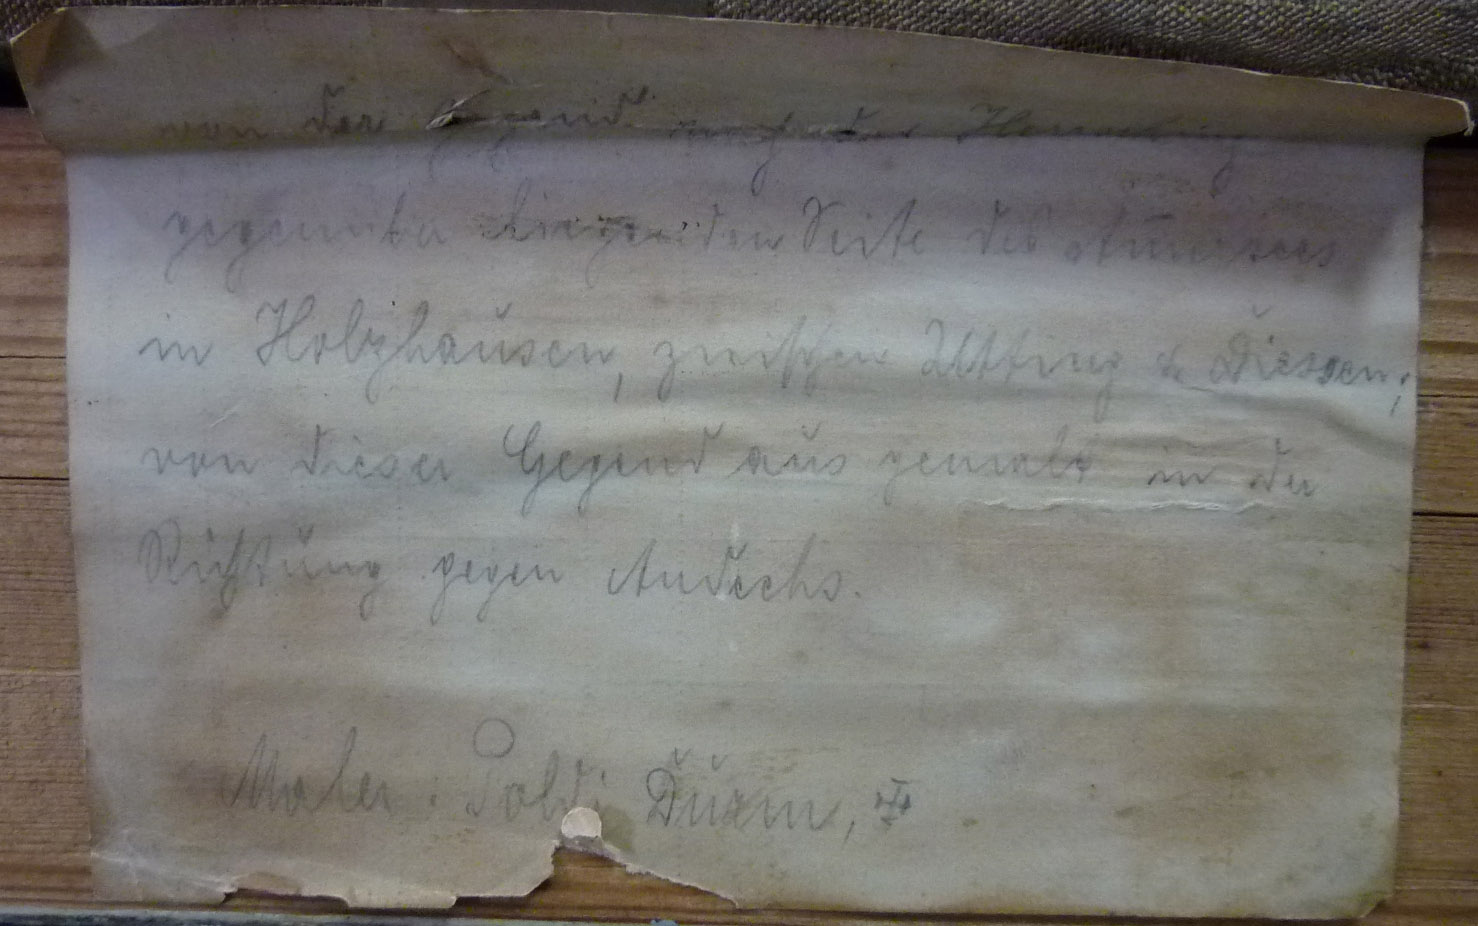 von der Gegend
gegenüber liegenden Seite des Ammersees
in Holzhausen, zwischen Utting & Diessen;
von dieser Gegend aus gemalt in der
Richtung gegen Andechs.
Maler: Poldi